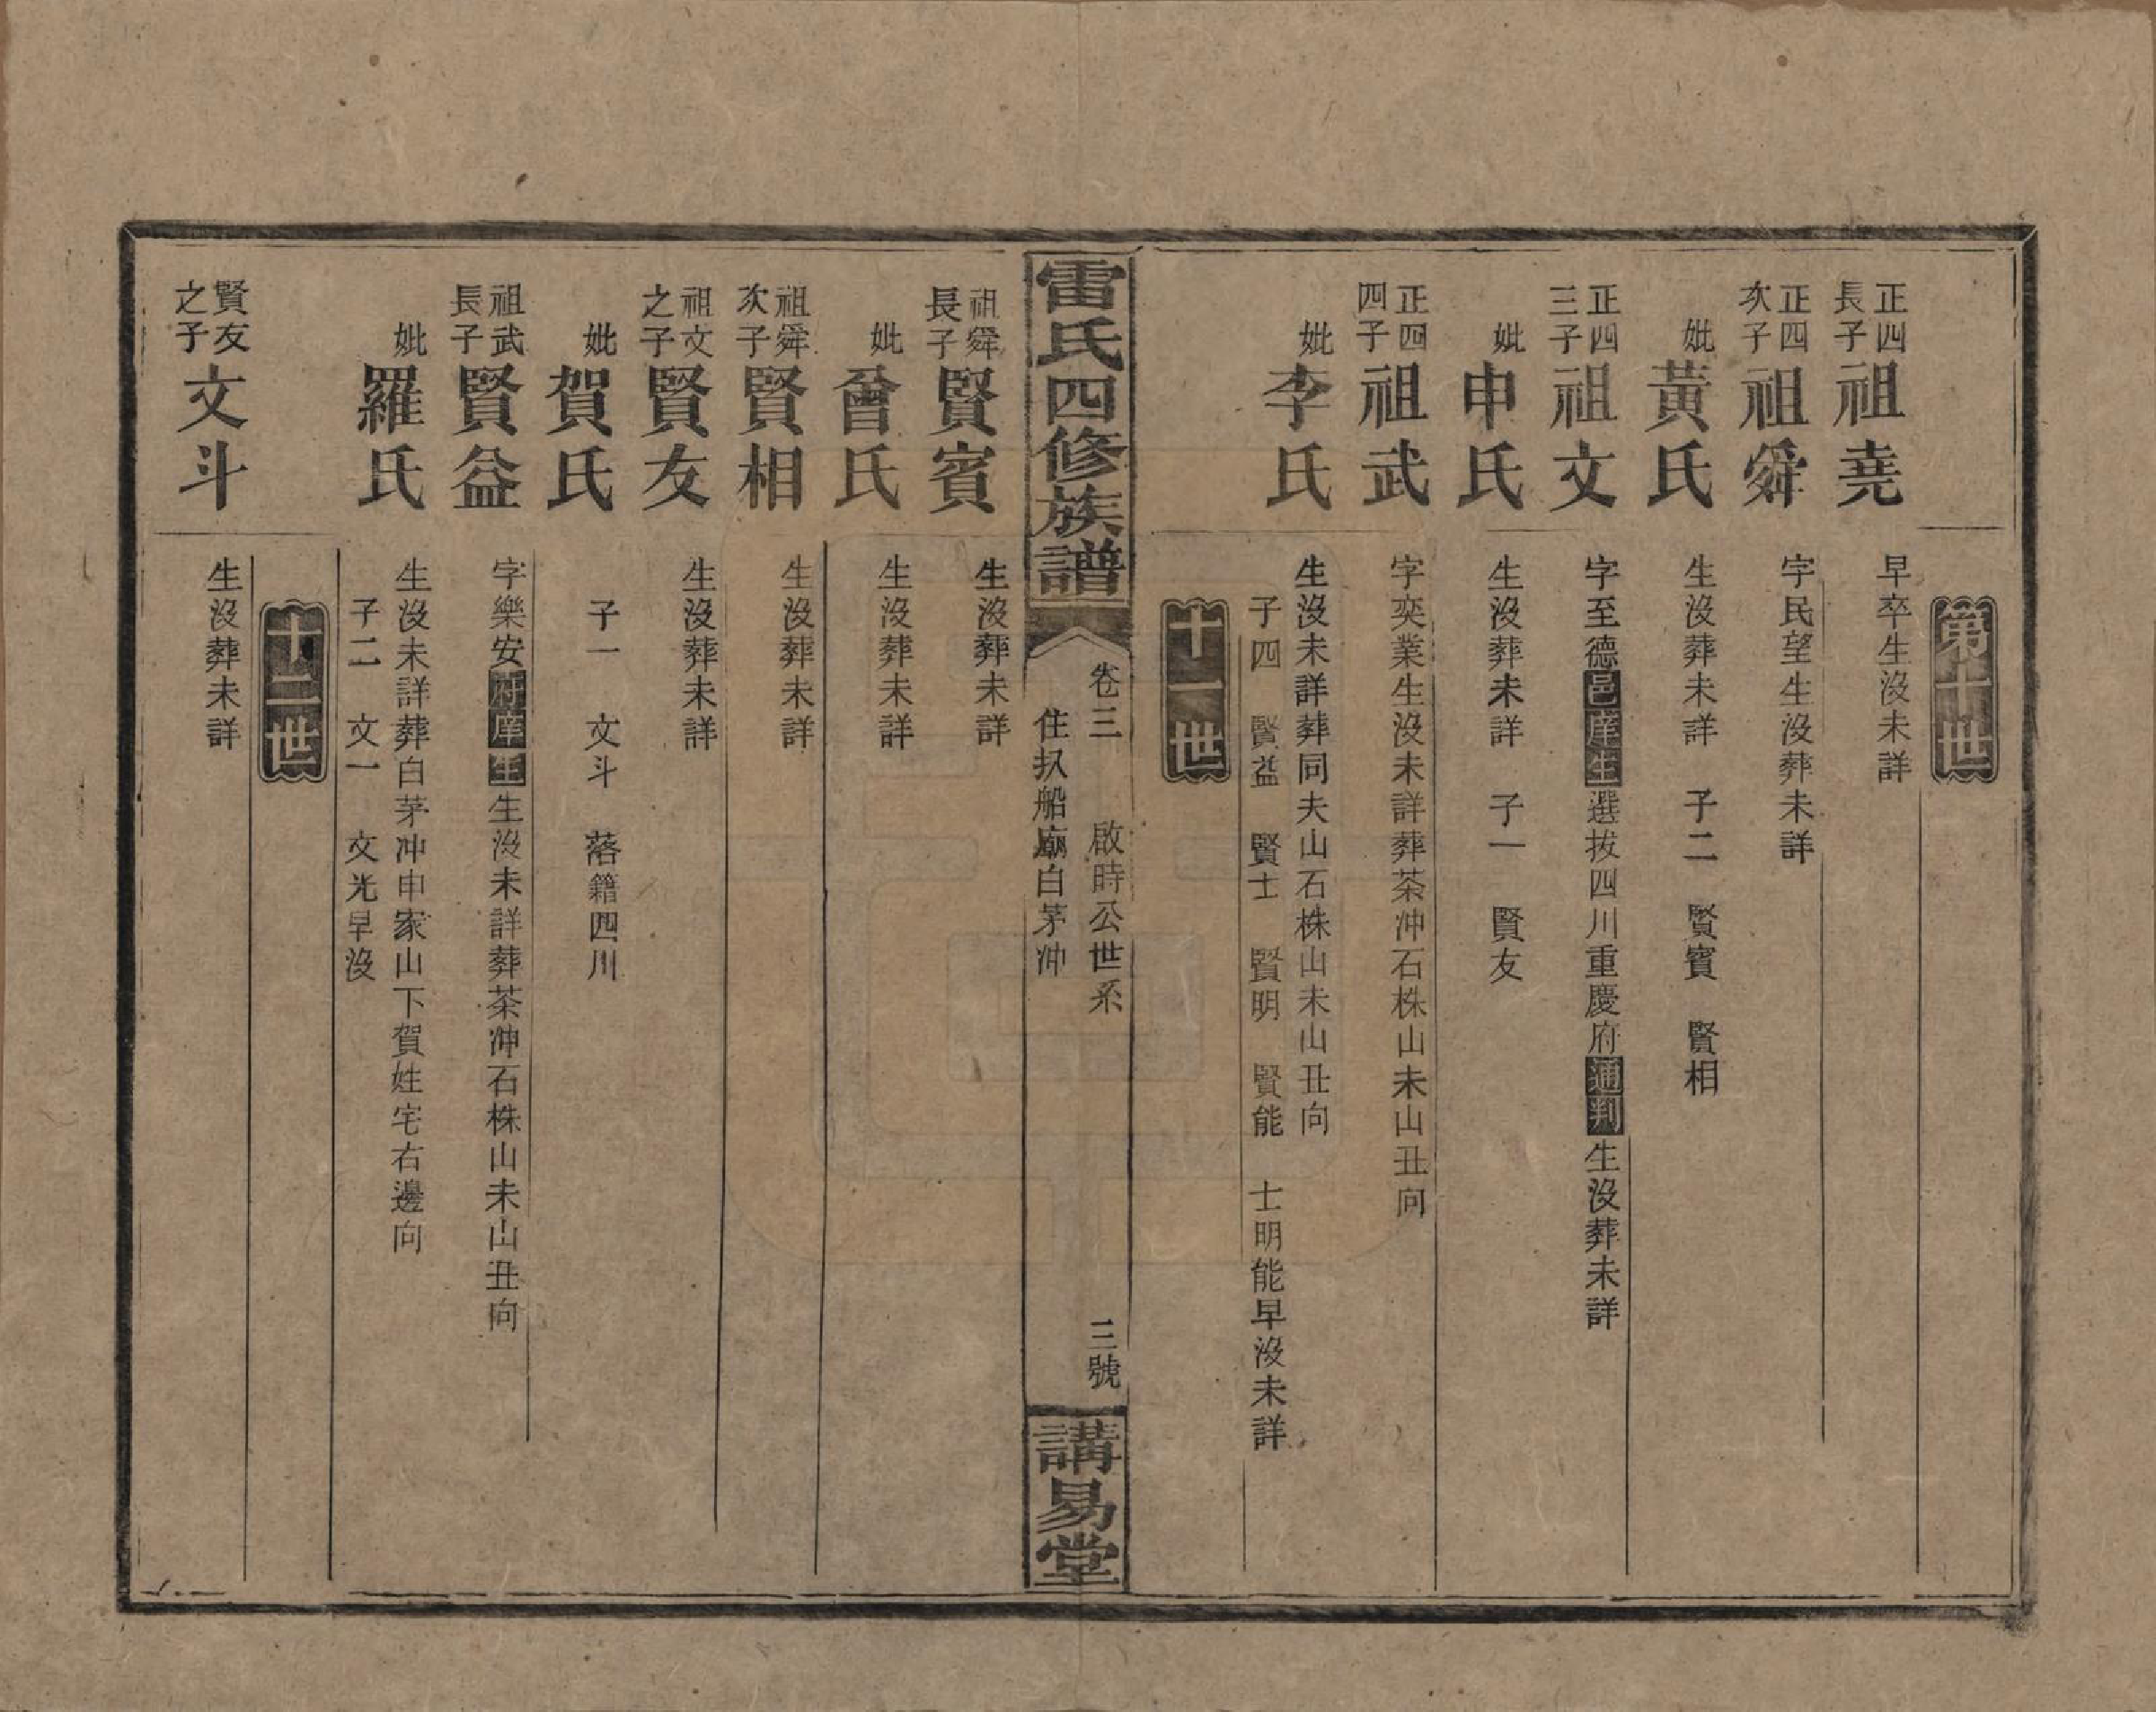 第十世
正四長子
祖堯
早卒生沒未詳
正四次子
祖舜
字民望生沒葬未詳
妣
黃氏
生沒葬未詳　子二　賢賓　賢相
正四三子
祖文
字至德邑庠生選拔四川重慶府通判生沒葬未詳
妣
申氏
生沒葬未詳　子一　賢友
正四四子
祖武
字奕業生沒未詳葬茶沖石株山未山丑向
妣
李氏
生沒未詳葬同夫山石株山未山丑向
子四　賢益　賢士　賢明　賢能　士明能早沒未詳
十一世
雷氏四修族譜
卷三　啟時公世系　三號
住扖船廟白茅沖
講易堂
祖舜長子
賢賓
生沒葬未詳
妣
曾氏
生沒葬未詳
祖舜次子
賢相
生沒葬未詳
祖文之子
賢友
生沒葬未詳
妣
賀氏
子一　文斗　落籍四川
祖武長子
賢益
字樂安府庠生生沒未詳葬茶沖石株山未山丑向
妣
羅氏
生沒未詳葬白茅沖申家山下賀姓宅右邊向
子二　文一　文光早沒
十二世
賢友之子
文斗
生沒葬未詳